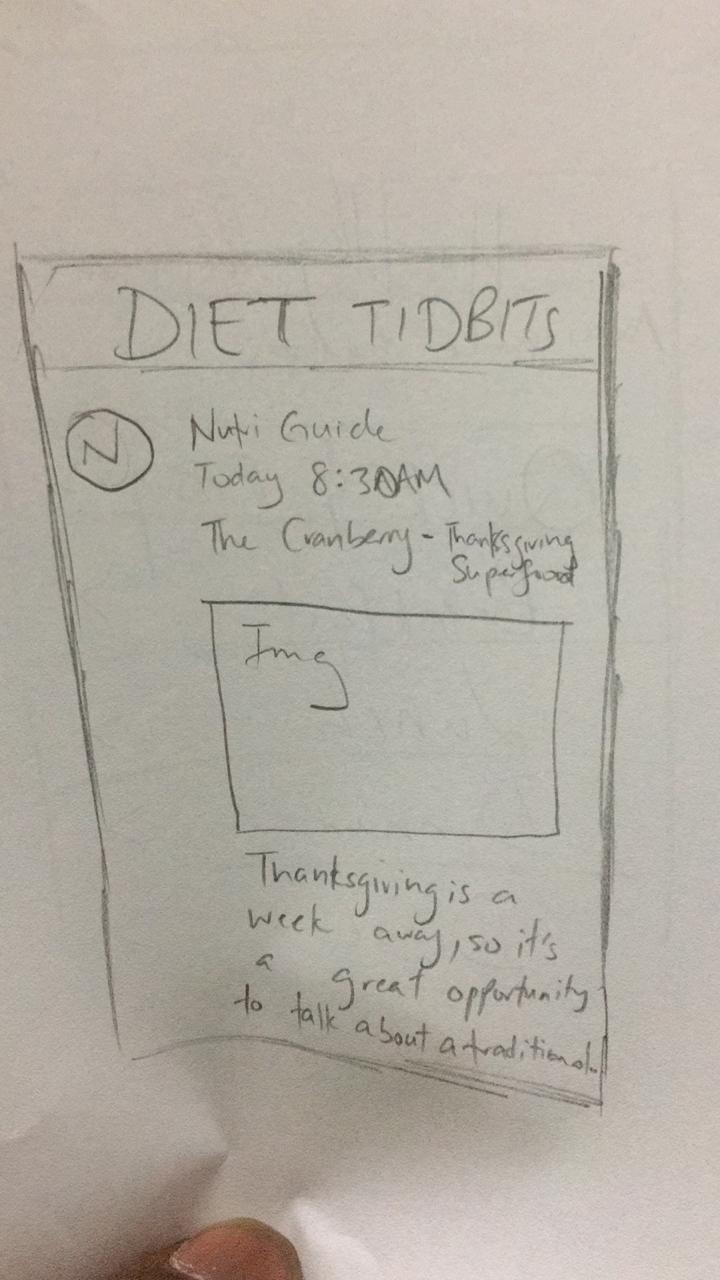 DIET TIDBITS
N
Nutri Guide
Today 8:30AM
The Cranberry - Thanksgiving
Superfood
Img
Thanksgiving is a
week away, so it's
a great opportunity
to talk about a traditional..